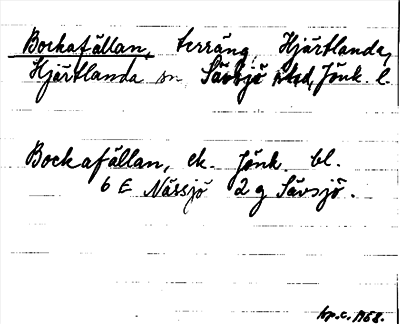 Bockafällan, terräng, Hjärtlanda,
Hjärtlanda sn Sävsjö stad, Jönk. l.
Bockafällan, ek. Jönk. bl.
6 E Nässjö 2 g Sävsjö.
1958.